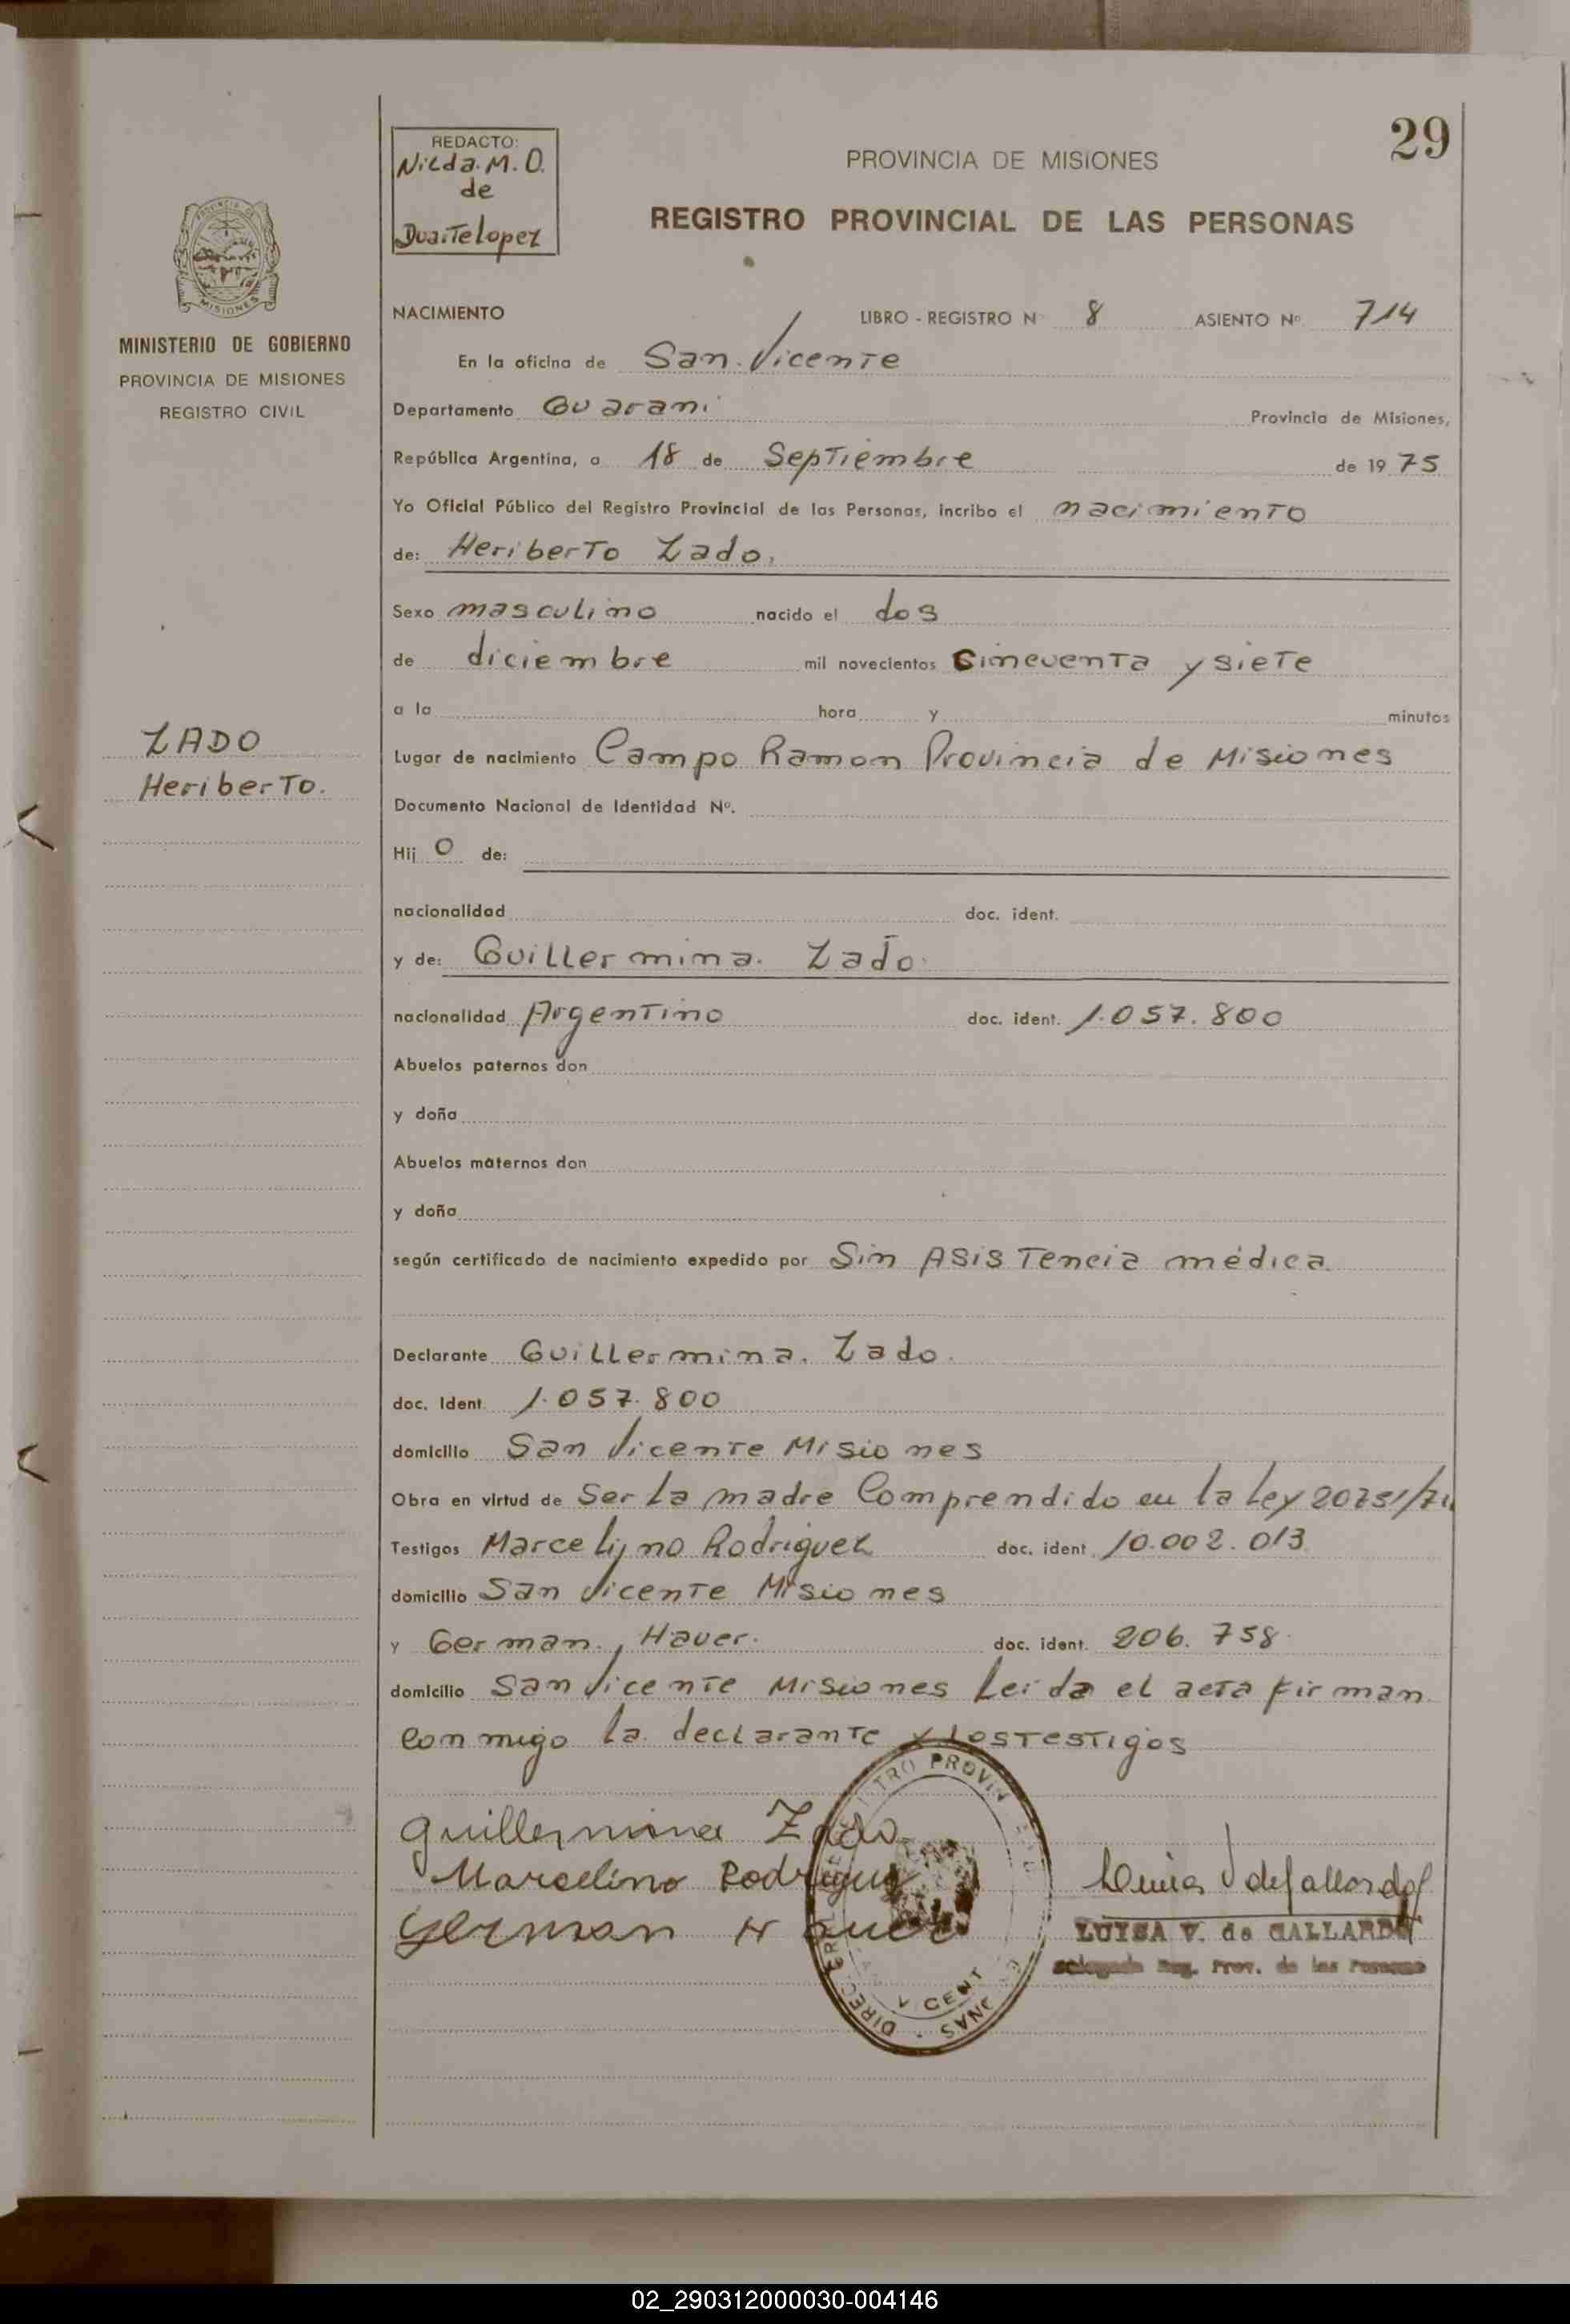 29
REDACTO:
Nilda. M. D.
de
Duarte Lopez
PROVINCIA DE MISIONES
REGISTRO PROVINCIAL DE LAS PERSONAS
MINISTERIO DE GOBIERNO
PROVINCIA DE MISIONES
REGISTRO CIVIL
ZADO
Heriberto.
NACIMIENTO LIBRO - REGISTRO Nº 8 ASIENTO Nº 714
En la oficina de San Vicente
Departamento Guarani Provincia de Misiones,
República Argentina, a 18 de Septiembre de 1975
Yo Oficial Público del Registro Provincial de las Personas, incribo el nacimiento
de: Heriberto Zado.
Sexo masculino nacido el dos
de diciembre mil novecientos cincuenta y siete
a la hora y minutos
Lugar de nacimiento Campo Ramon Provincia de Misiones
Documento Nacional de Identidad Nº.
Hij o de:
nacionalidad doc. ident.
y de: Guillermina. Zado.
nacionalidad Argentino doc. ident. 1.057.800
Abuelos paternos don
y doña
Abuelos maternos don
y doña
según certificado de nacimiento expedido por Sin Asistencia médica
Declarante Guillermina. Zado.
doc. ident. 1.057.800
domicilio San Vicente Misiones
Obra en virtud de Ser la madre Comprendido en la Ley 20751/74
Testigos Marcelino Rodriguez doc. ident. 10.002.013
domicilio San Vicente Misiones
y German. Hauer. doc. ident. 206.758
domicilio San Vicente Misiones Leida el acta firman
conmigo la declarante y los testigos
Guillermina Zado
Marcelino Rodriguez
German Hauer
Luisa V de Gallardo
LUISA V. de GALLARDO
Delegada Reg. Prov. de las Personas
02_290312000030-004146